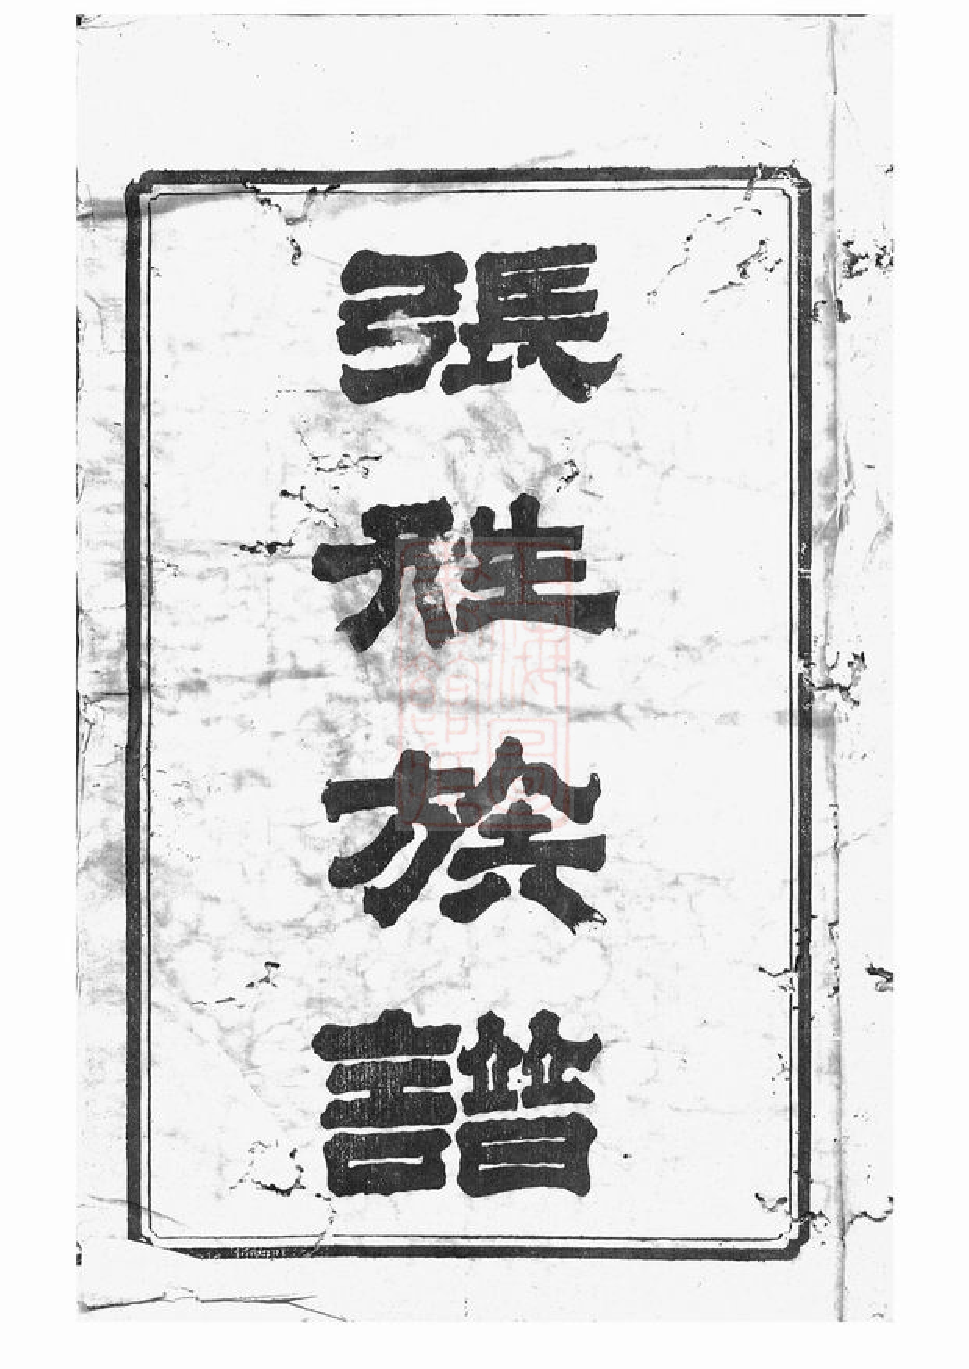 張姓族譜